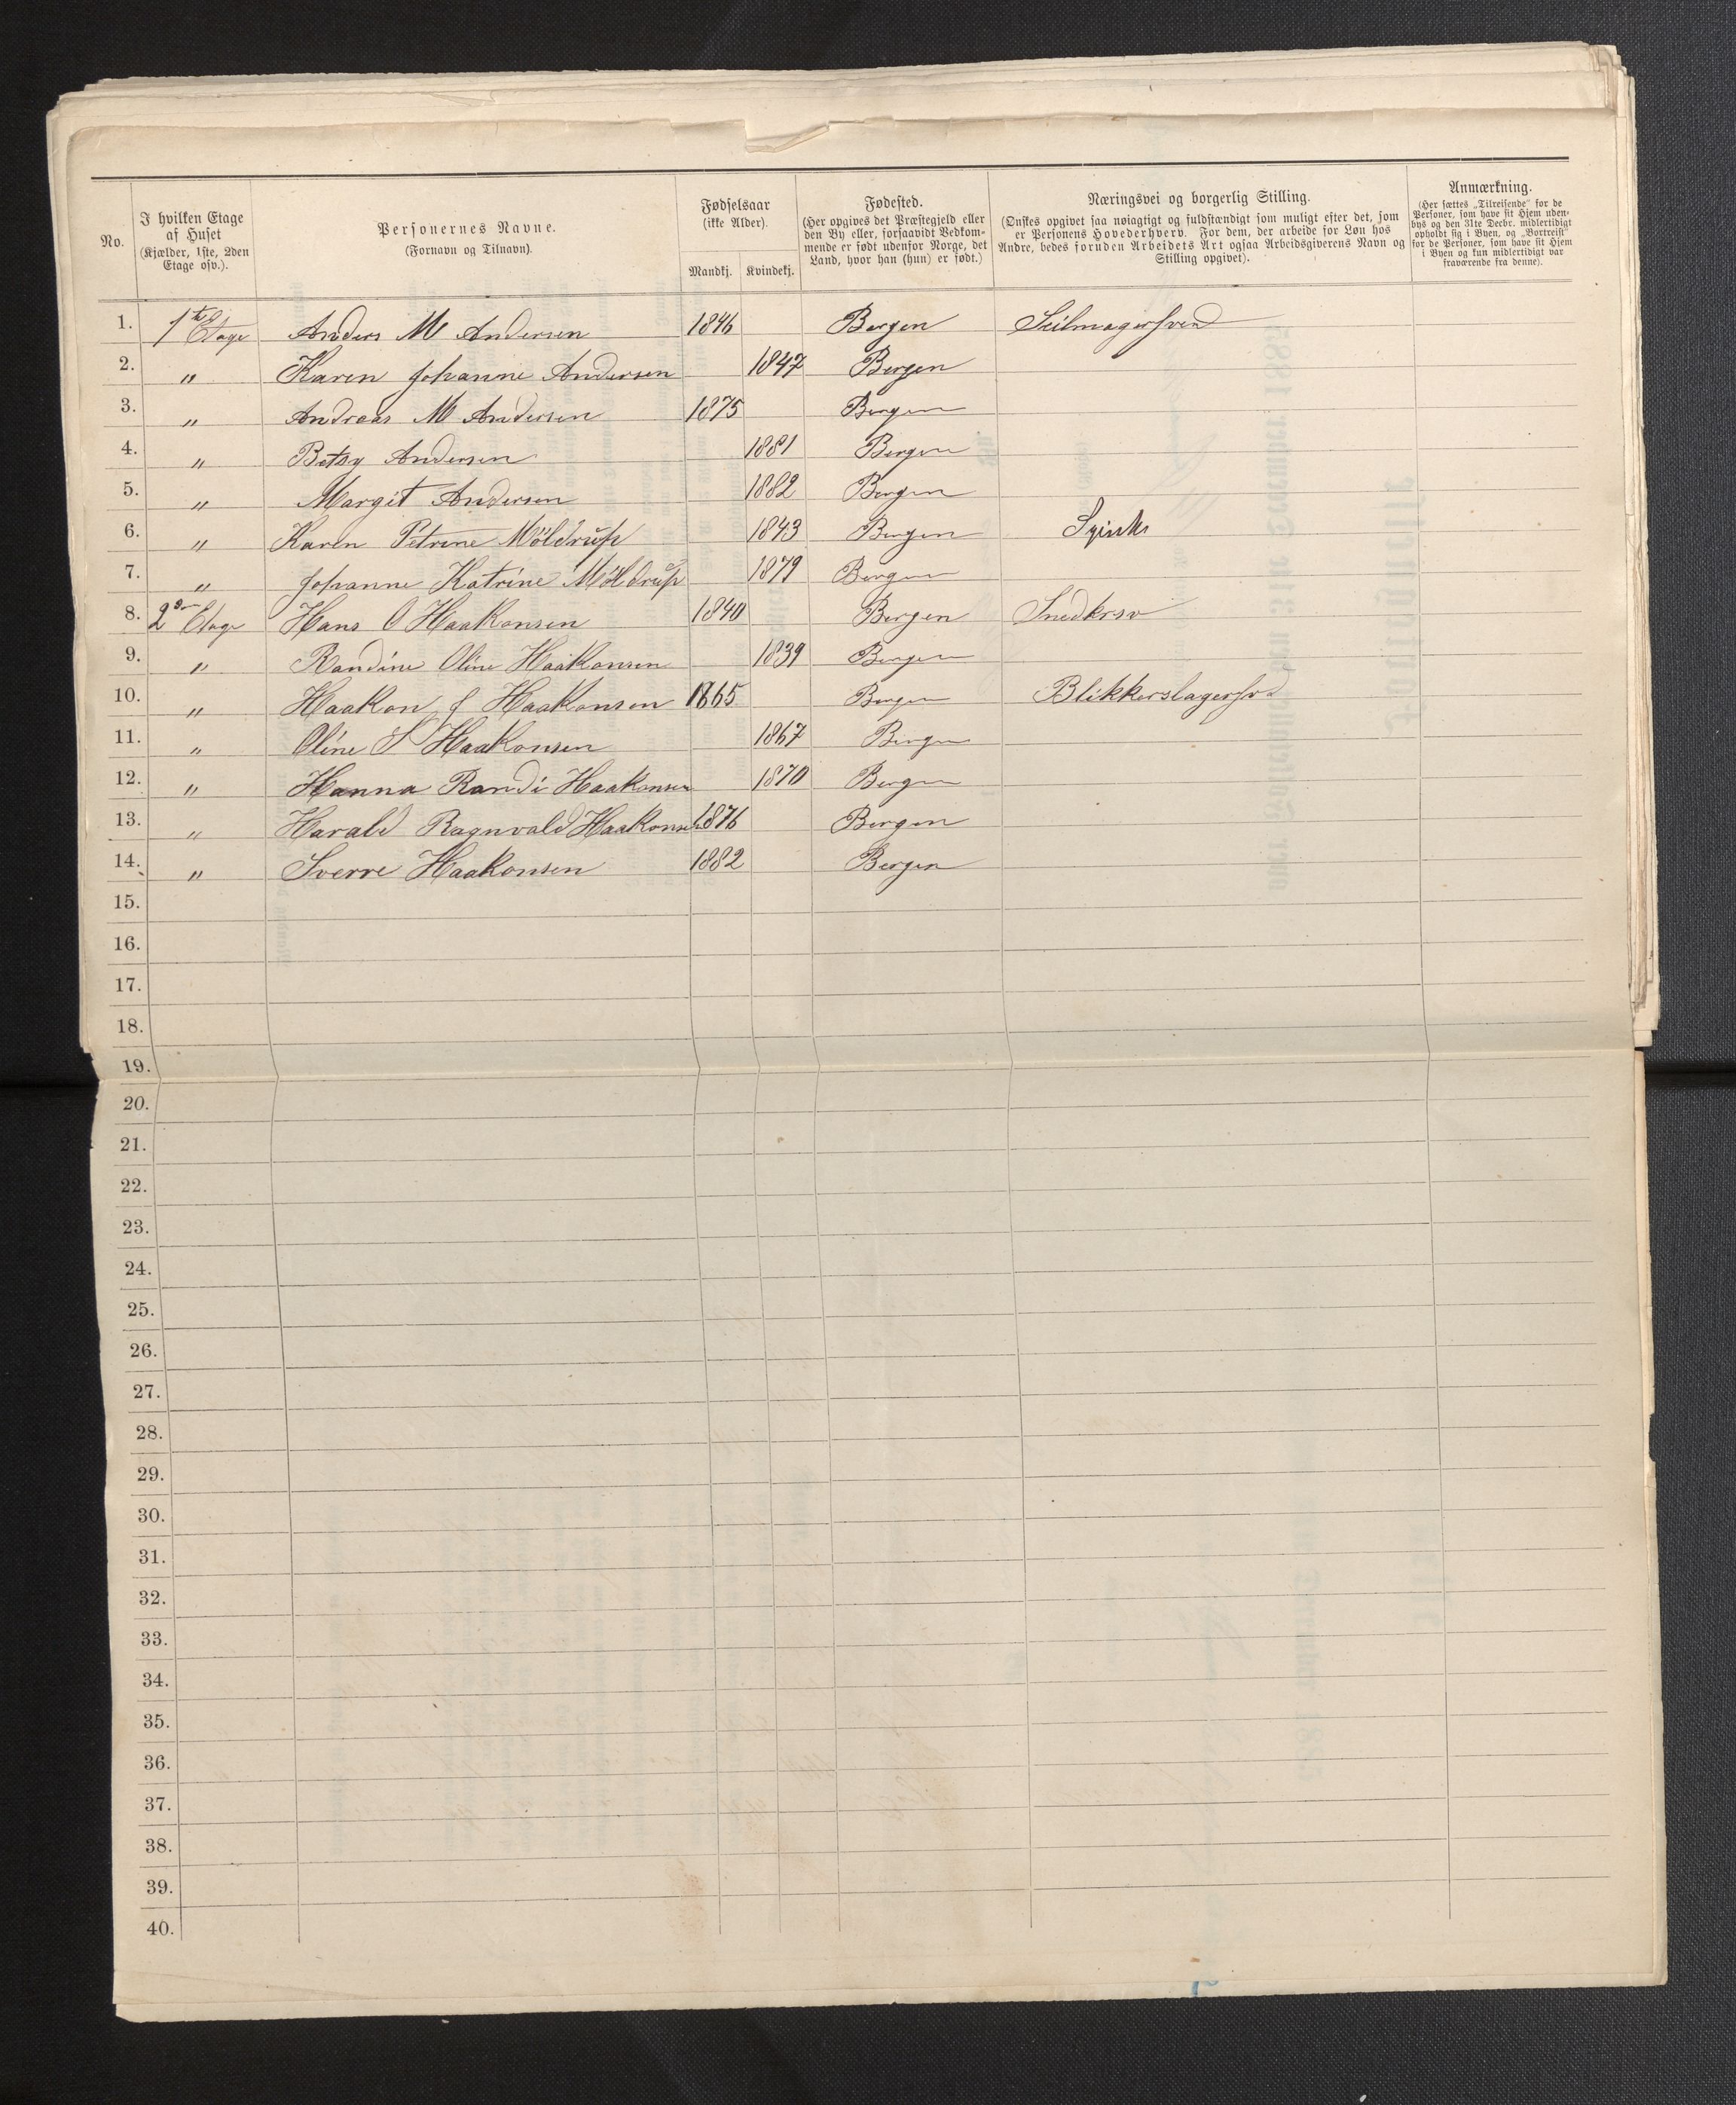 No. | I hvilken Etage af Huset (Kjælder, 1ste, 2den Etage osv.). | Personernes Navne. (Fornavn og Tilnavn). | Fødselsaar (ikke Alder). Mandkj. | Kvindekj. | Fødested. (Her opgives det Præstegjeld eller den By eller, forsaavidt Vedkommende er født udenfor Norge, det Land, hvor han (hun) er født.) | Næringsvei og borgerlig Stilling. (Ønskes opgivet saa nøiagtigt og fuldstændigt som muligt efter det, som er Personens Hovederhverv. For dem, der arbeide for Løn hos Andre, bedes foruden Arbeidets Art ogsaa Arbeidsgiverens Navn og Stilling opgivet). | Anmærkning. (Her sættes „Tilreisende" for de Personer, som have sit Hjem udenbys og den 31te Decbr. midlertidigt opholdt sig i Byen, og „Bortreist" for de Personer, som have sit Hjem i Byen og kun midlertidigt var fraværende fra denne).
1. 1ste Etage Anders M Andersen 1846 Bergen Seilmagersvend
2. " Karen Johanne Andersen 1847 Bergen
3. " Andreas M Andersen 1875 Bergen
4. " Betsy Andersen 1881 Bergen
5. " Margit Andersen 1882 Bergen
6. " Karen Petrine Möldrŭp 1843 Bergen
7. " Johanne Katrine Möldrŭp 1879 Bergen
8. 2den Etage Hans O Haakonsen 1840 Bergen Snedkrsv
9. " Randine Oline Haakonsen 1839 Bergen
10. " Haakon J Haakonsen 1865 Bergen Blikkerslagersvd
11. " Oline S Haakonsen 1867 Bergen
12. " Hanna Randi Haakonsen 1870 Bergen
13. " Harald Ragnvald Haakonsen 1876 Bergen
14. " Sverre Haakonsen 1882 Bergen
15.
16.
17.
18.
19.
20.
21.
22.
23.
24.
25.
26.
27.
28.
29.
30.
31.
32.
33.
34.
35.
36.
37.
38.
39.
40.